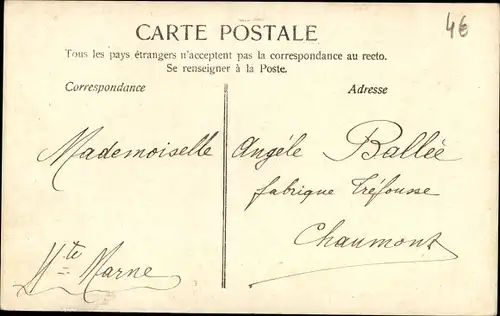 CARTE POSTALE
4€
Tous les pays étrangers n'acceptent pas la correspondance au recto.
Se renseigner à la Poste.
Correspondance
Adresse
Mademoiselle Angéle Ballée
fabrique Tréfousse
Chaumont
Hte Marne